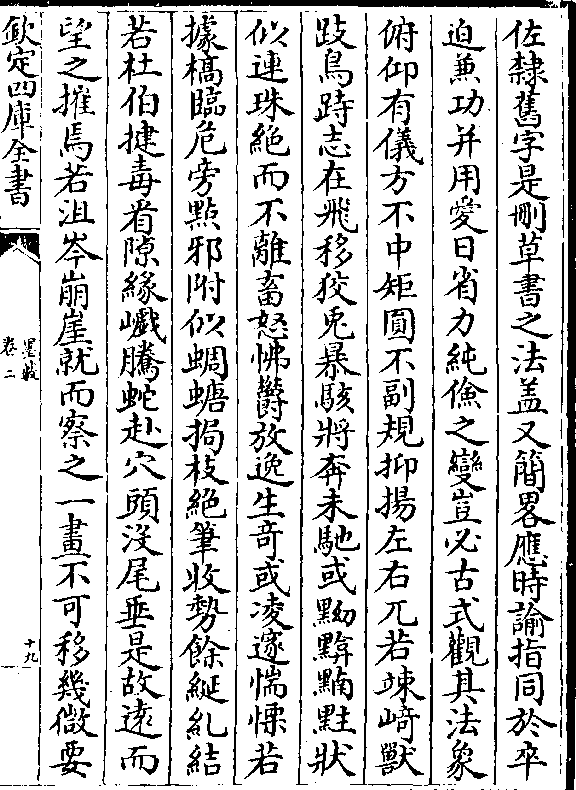 佐隸舊字是刪草書之法盖又簡畧應時諭指同於卒
迫兼功并用愛日省力純儉之變豈必古式觀其法象
俯仰有儀方不中矩圓不副規抑揚左右兀若竦﨑獸
跂鳥跱志在飛移狡兎暴駭將奔未馳或𪐴䵣點䵹狀
似連珠絶而不離畜怒怫鬱放逸生奇或凌邃惴慄若
據槁臨危旁點邪附似蜩螗挶枝絶筆收勢餘綖糺結
若杜伯揵毒看隙緣巇騰蛇赴穴頭沒尾垂是故逺而
望之摧焉若沮岑崩崖就而察之一畫不可移幾微要
欽定四庫全書
墨藪
卷二
十九